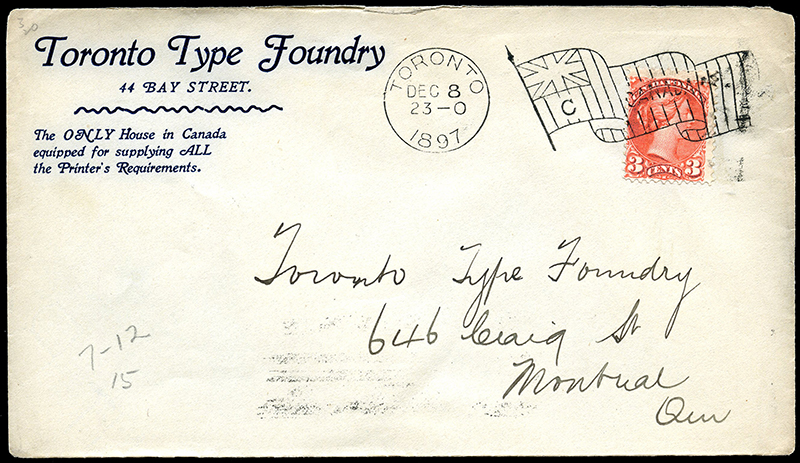 3
20
Toronto Type Foundry
44 BAY STREET.
The ONLY House in Canada
equipped for supplying ALL
the Printer's Requirements.
TORONTO
DEC 8
23-0
1897
C
3 CENTS 3
Toronto Type Foundry
646 Craig St
Montreal
Que
7-12
15